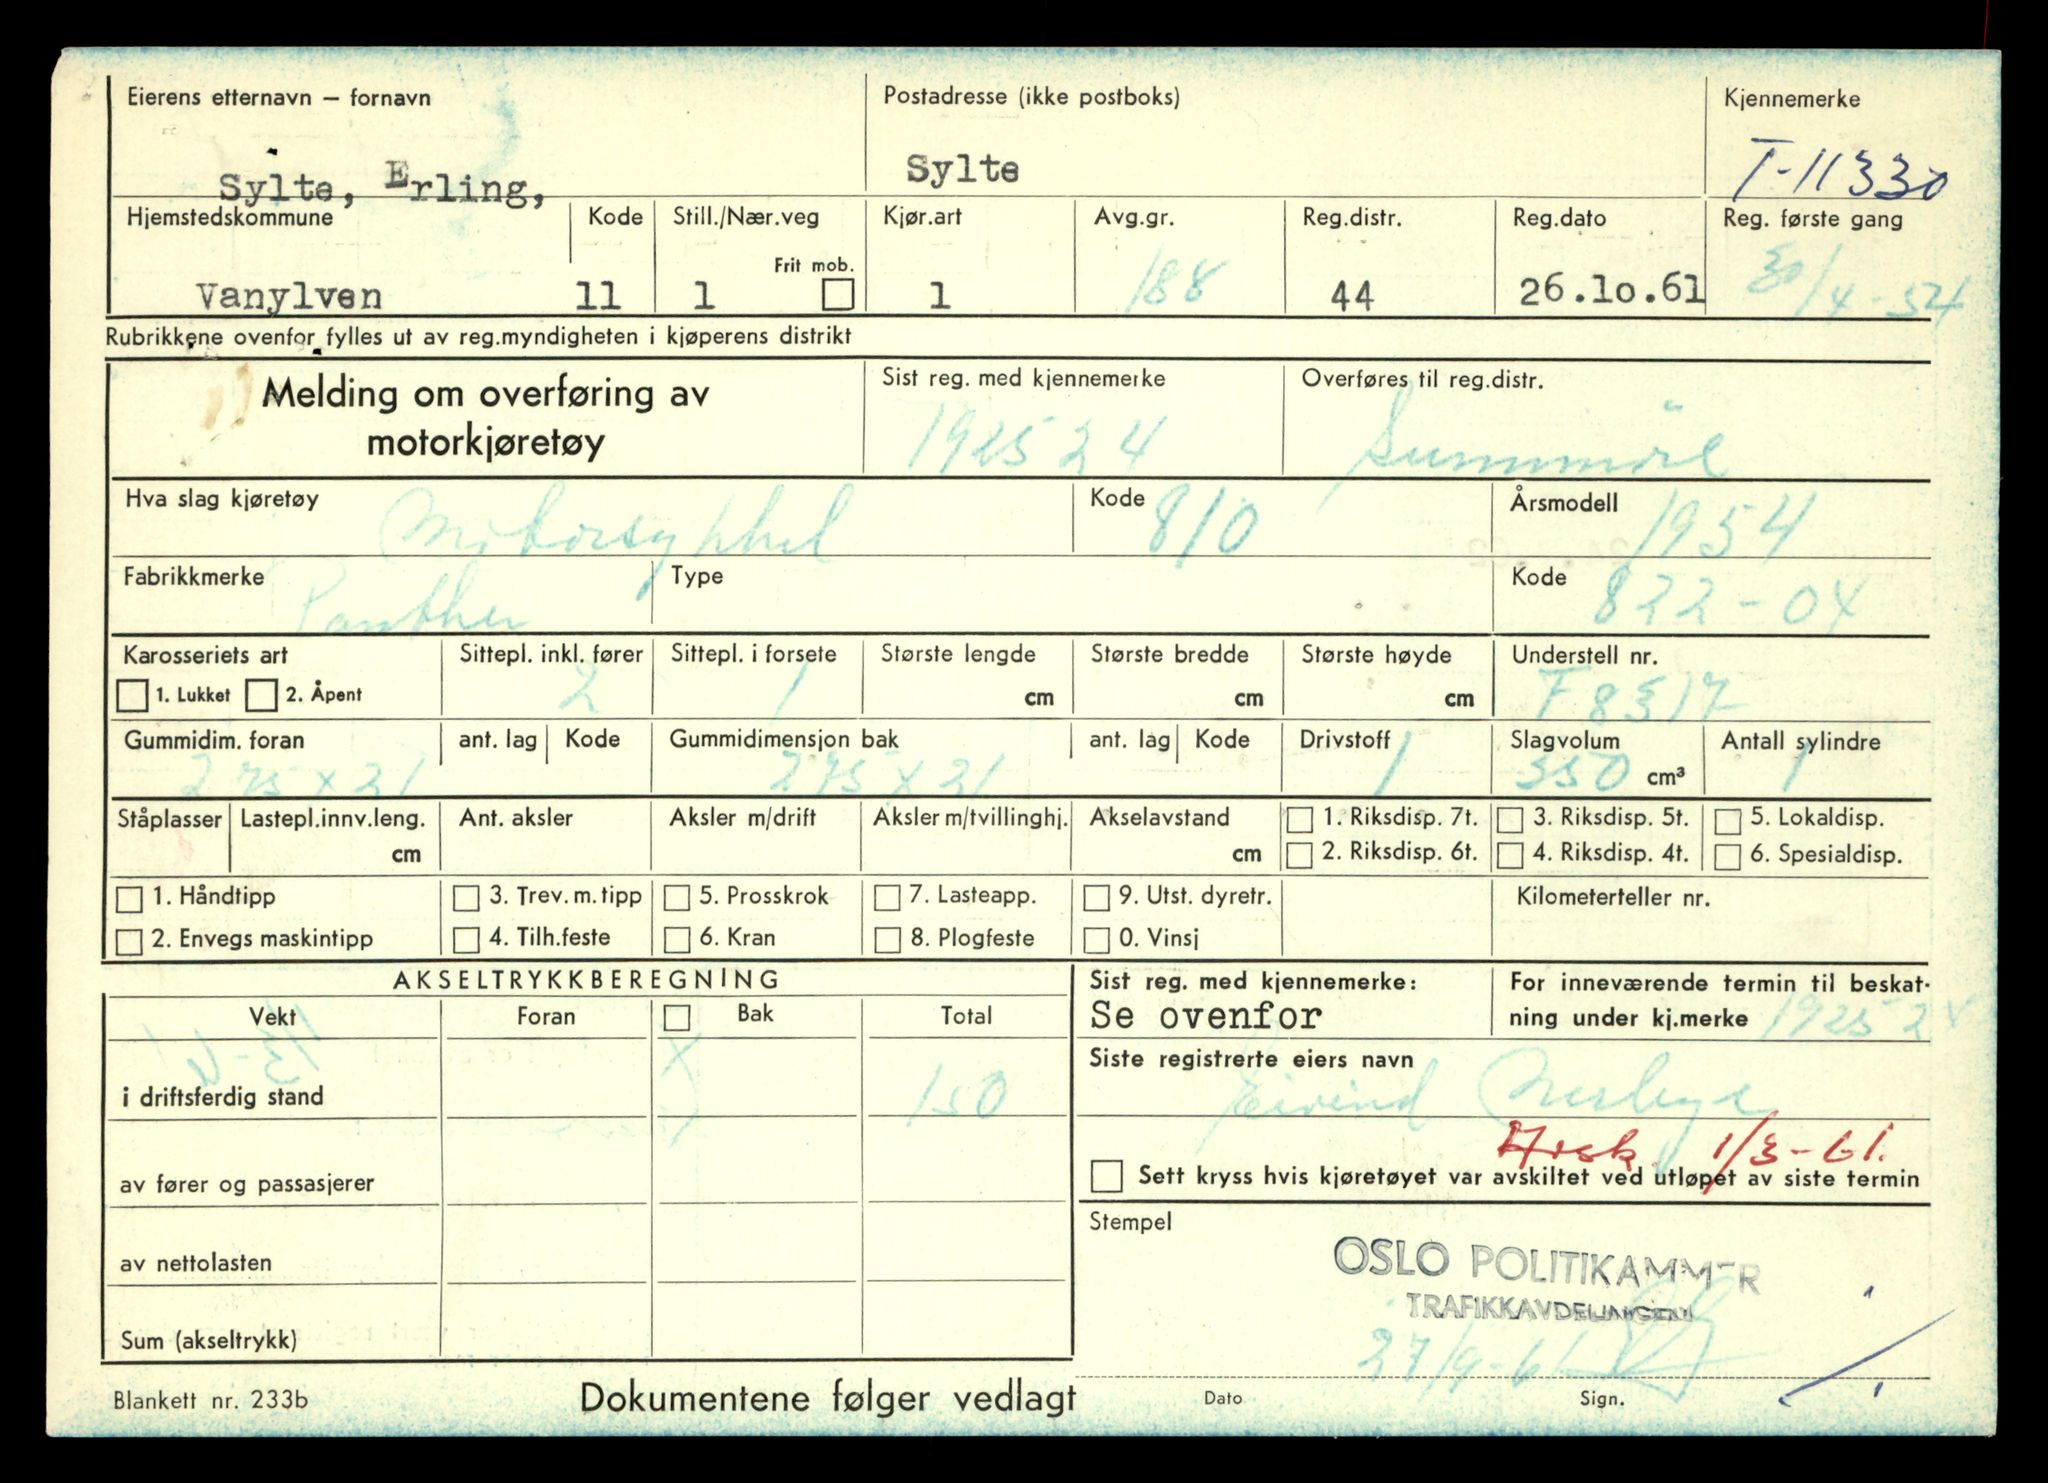 Eierens etternavn – fornavn Postadresse (ikke postboks) Kjennemerke
Sylte, Erling, Sylte T-11330
Hjemstedskommune Kode Still./Nær.veg Kjør.art Avg.gr. Reg.distr. Reg.dato Reg. første gang
Frit mob.
Vanylven 11 1 1 188 44 26.10.61 30/4-54
Rubrikkene ovenfor fylles ut av reg.myndigheten i kjøperens distrikt
Melding om overføring av motorkjøretøy Sist reg. med kjennemerke Overføres til reg.distr.
192524 Sunnmöre
Hva slag kjøretøy Kode Årsmodell
Motorsykkel 810 1954
Fabrikkmerke Type Kode
Panther 822-04
Karosseriets art Sittepl. inkl. fører Sittepl. i forsete Største lengde Største bredde Største høyde Understell nr.
1. Lukket 2. Åpent 2 1 cm cm cm
Gummidim. foran ant. lag Kode Gummidimensjon bak ant. lag Kode Drivstoff Slagvolum Antall sylindre
275 x 21 275 x 21 1 350 cm³ 1
Ståplasser Lastepl.innv.leng. Ant. aksler Aksler m/drift Aksler m/tvillinghj. Akselavstand 1. Riksdisp. 7t. 3. Riksdisp. 5t. 5. Lokaldisp.
cm cm 2. Riksdisp. 6t. 4. Riksdisp. 4t. 6. Spesialdisp.
1. Håndtipp 3. Trev. m. tipp 5. Prosskrok 7. Lasteapp. 9. Utst. dyretr. Kilometerteller nr.
2. Envegs maskintipp 4. Tilh.feste 6. Kran 8. Plogfeste 0. Vinsj
AKSELTRYKKBEREGNING Sist reg. med kjennemerke: For inneværende termin til beskat-
Vekt Foran Bak Total Se ovenfor ning under kj.merke 192524
Siste registrerte eiers navn
i driftsferdig stand 150 Eivind
1/3-61.
av fører og passasjerer Sett kryss hvis kjøretøyet var avskiltet ved utløpet av siste termin
Stempel
av nettolasten OSLO POLITIKAMMER
TRAFIKKAVDELINGEN
Sum (akseltrykk) 27/9-61
Blankett nr. 233b Dokumentene følger vedlagt Dato Sign.